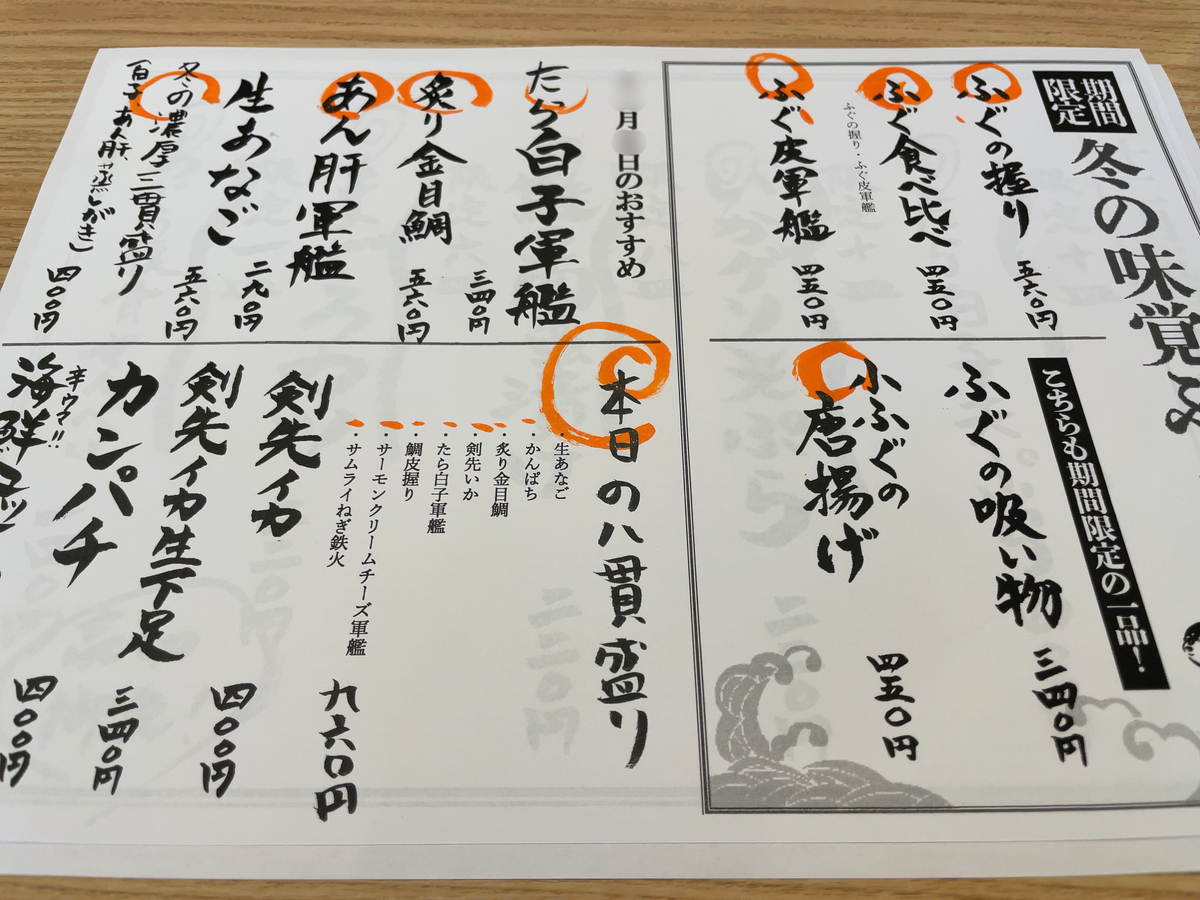 期間限定
冬の味覚
ふぐの握り
五六〇円
ふぐ食べ比べ
ふぐの握り・ふぐ皮軍艦
四五〇円
ふぐ皮軍艦
四五〇円
こちらも期間限定の一品！
ふぐの吸い物
三四〇円
小ふぐの
唐揚げ
四五〇円
月 日のおすすめ
たら白子軍艦
三四〇円
炙り金目鯛
五六〇円
あん肝軍艦
二九〇円
生あなご
五六〇円
冬の濃厚三貫盛り
(白子、あん肝、蒸しがき)
四〇〇円
本日の八貫盛り
・生あなご
・かんぱち
・炙り金目鯛
・剣先いか
・たら白子軍艦
・鯛皮握り
・サーモンクリームチーズ軍艦
・サムライねぎ鉄火
九六〇円
剣先イカ
四〇〇円
剣先イカ生下足
三四〇円
カンパチ
四〇〇円
辛ウマ!!
海鮮ユッ